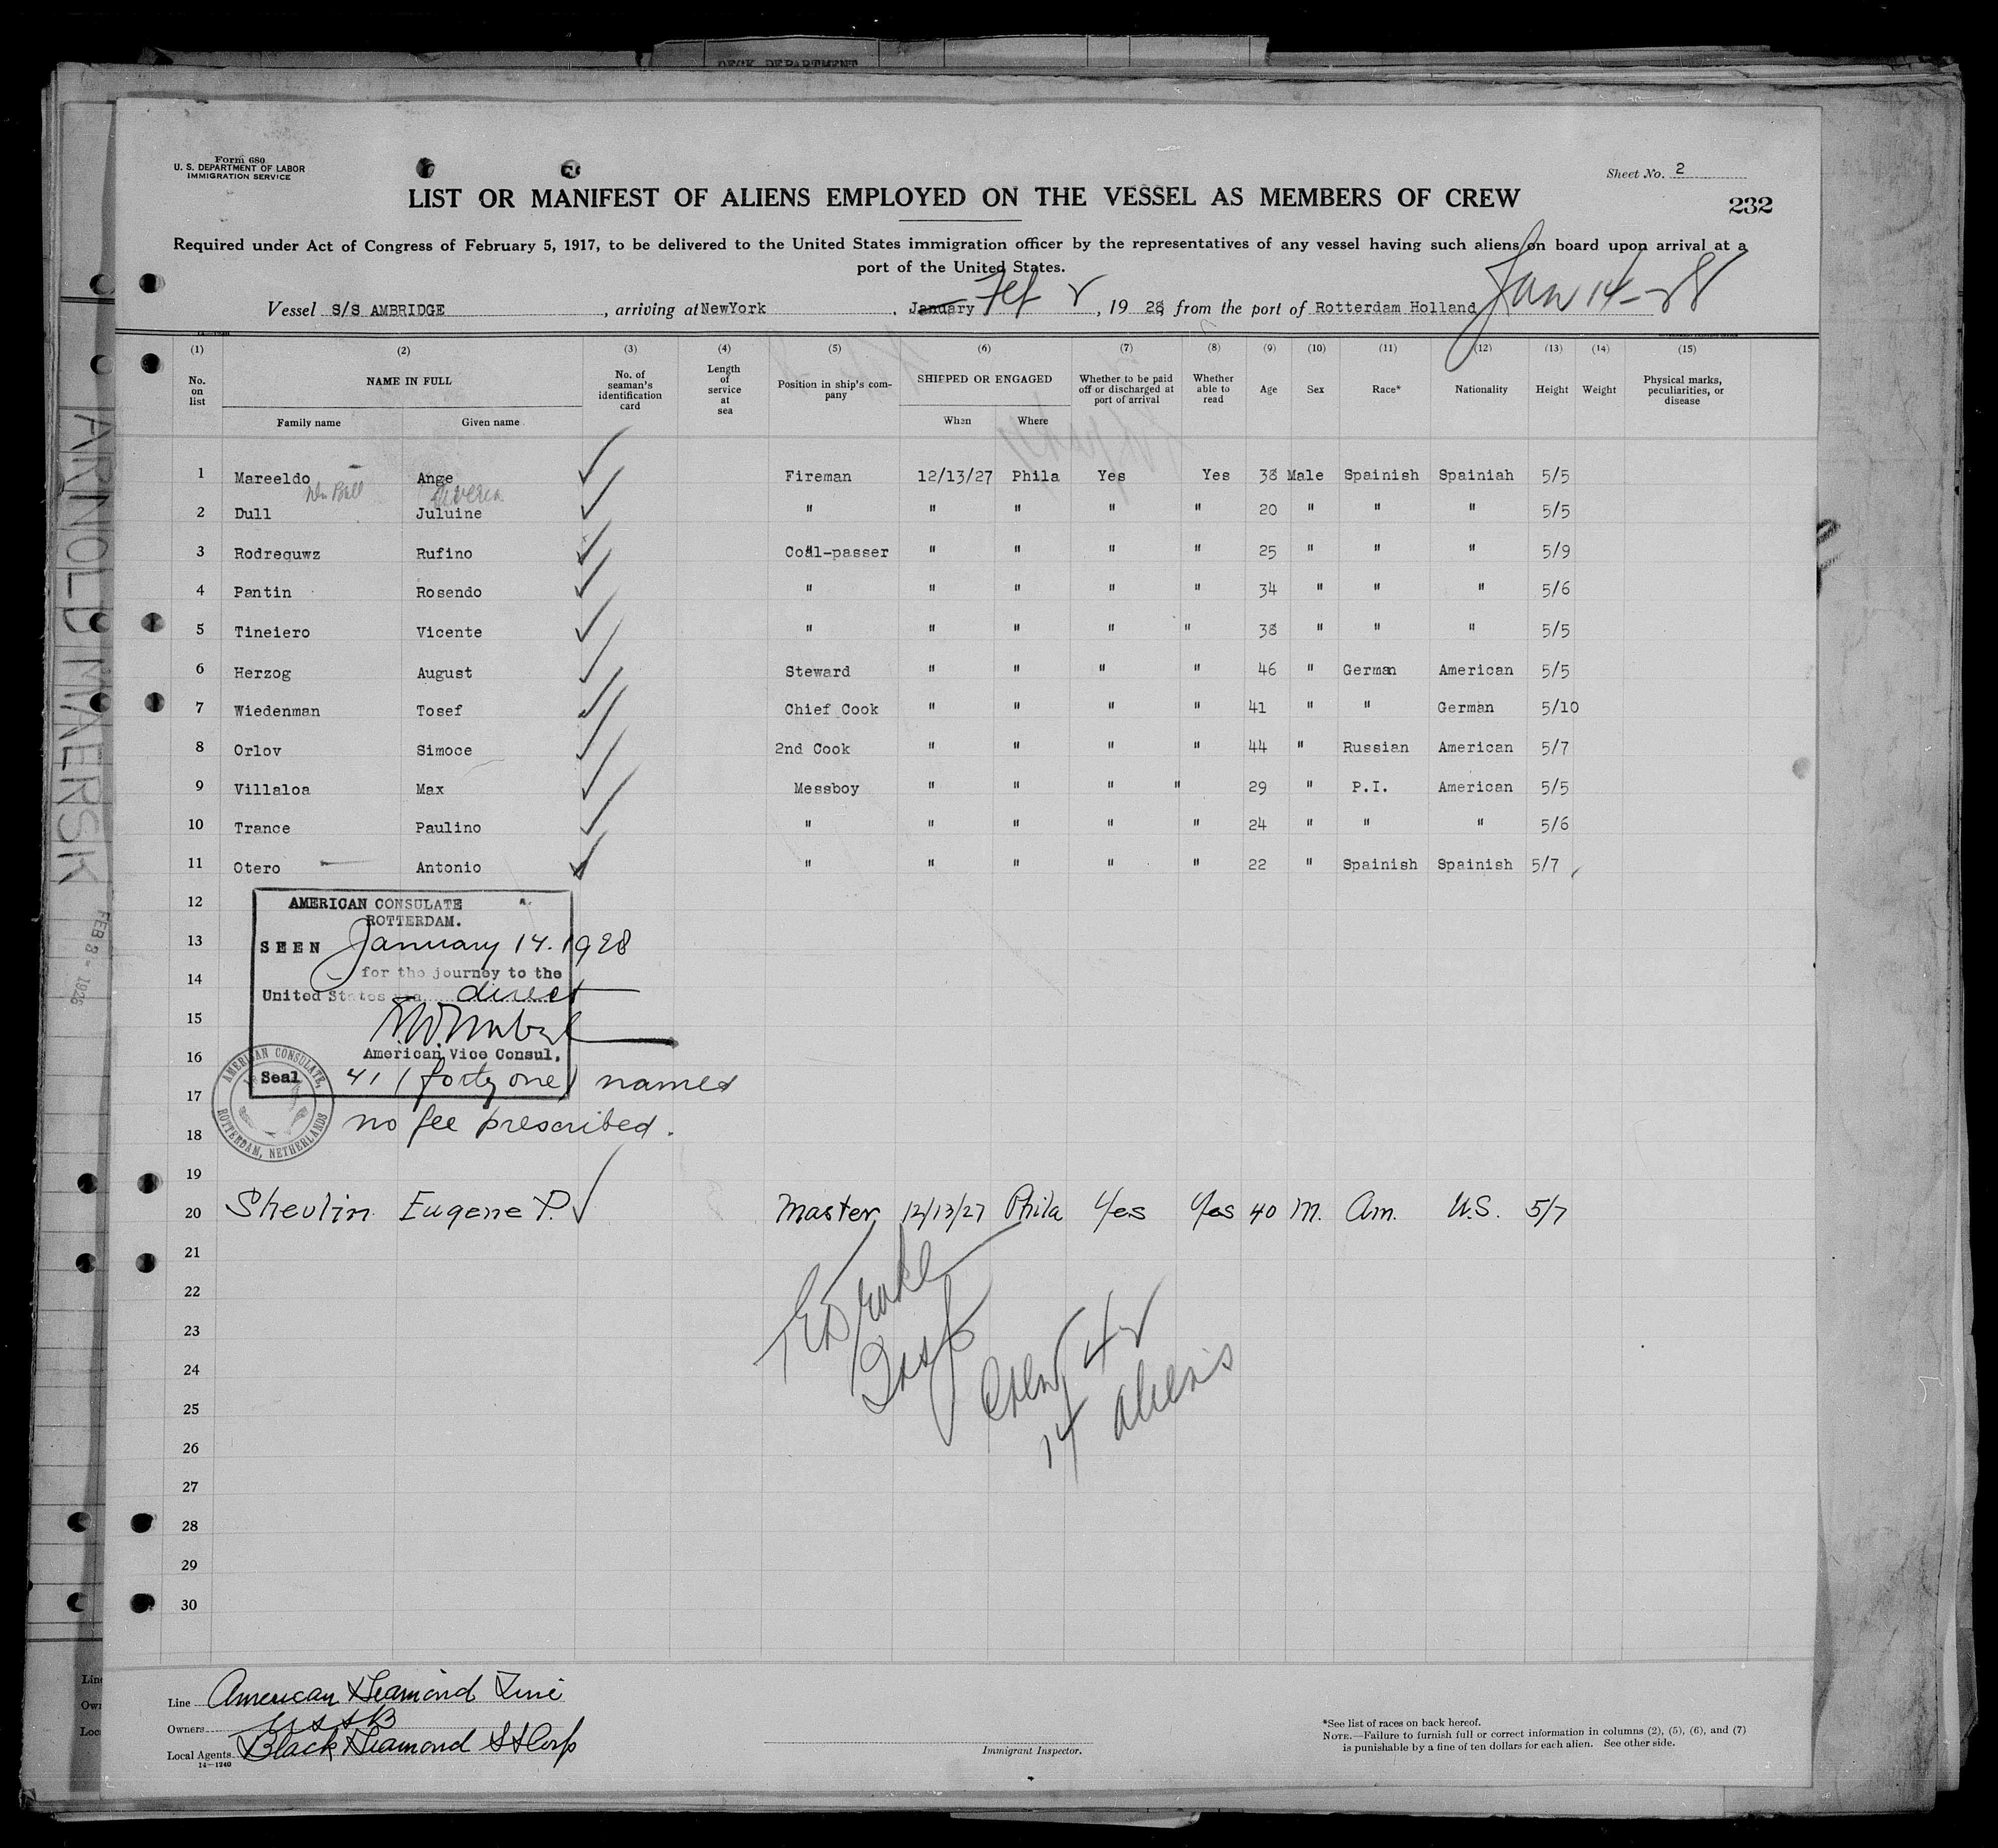 DECK DEPARTMENT
Form 680
U. S. DEPARTMENT OF LABOR
IMMIGRATION SERVICE
Sheet No. 2
LIST OR MANIFEST OF ALIENS EMPLOYED ON THE VESSEL AS MEMBERS OF CREW
232
Required under Act of Congress of February 5, 1917, to be delivered to the United States immigration officer by the representatives of any vessel having such aliens on board upon arrival at a
port of the United States.
Vessel S/S AMBRIDGE , arriving at NewYork , January Feb 2 , 19 28 from the port of Rotterdam Holland Jan 14-28
(1) (2) (3) (4) (5) (6) (7) (8) (9) (10) (11) (12) (13) (14) (15)
No. on list NAME IN FULL No. of seaman's identification card Length of service at sea Position in ship's company SHIPPED OR ENGAGED Whether to be paid off or discharged at port of arrival Whether able to read Age Sex Race* Nationality Height Weight Physical marks, peculiarities, or disease
Family name Given name When Where
1 Mareeldo Ange Fireman 12/13/27 Phila Yes Yes 38 Male Spainish Spainiah 5/5
2 Dull Juluine " " " " " 20 " " " 5/5
3 Rodrequwz Rufino Coal-passer " " " " 25 " " " 5/9
4 Pantin Rosendo " " " " " 34 " " " 5/6
5 Tineiero Vicente " " " " " 38 " " " 5/5
6 Herzog August Steward " " " " 46 " German American 5/5
7 Wiedenman Tosef Chief Cook " " " " 41 " " German 5/10
8 Orlov Simoce 2nd Cook " " " " 44 " Russian American 5/7
9 Villaloa Max Messboy " " " " 29 " P.I. American 5/5
10 Trance Paulino " " " " " 24 " " " 5/6
11 Otero Antonio " " " " " 22 " Spainish Spainish 5/7
12
AMERICAN CONSULATE
ROTTERDAM.
13
SEEN January 14. 1928
for the journey to the
14
United States via direct
15
American Vice Consul.
16
Seal 41 (forty one) names
17
no fee prescribed.
18
AMERICAN CONSULATE, ROTTERDAM, NETHERLANDS
19
20 Shevlin Eugene P. Master 12/13/27 Phila Yes Yes 40 M. Am. U.S. 5/7
21
22
23
24
Insp
Crew 42
25
14 aliens
26
27
28
29
30
Line American Diamond Line
Owners USSB
Local Agents Black Diamond SS Corp
14—1240
Immigrant Inspector.
*See list of races on back hereof.
NOTE.—Failure to furnish full or correct information in columns (2), (5), (6), and (7)
is punishable by a fine of ten dollars for each alien. See other side.
ARNOLD MAERSK